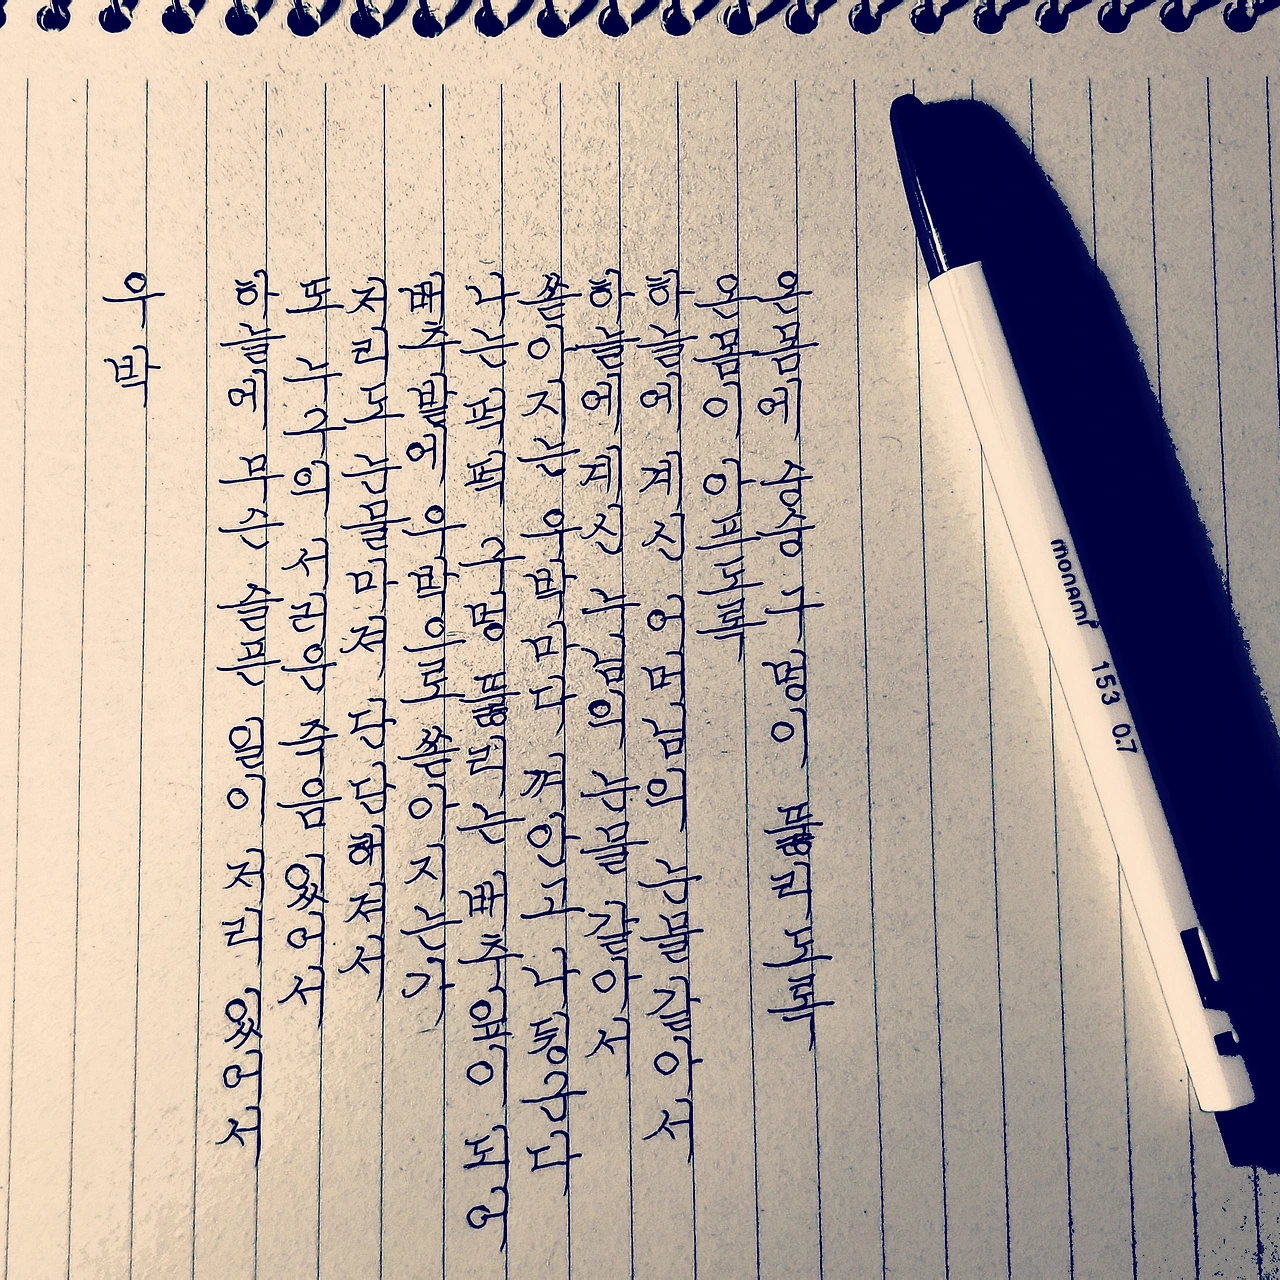 우박
하늘에 무슨 슬픈 일이 저리 있어서
또 누구의 서러운 죽음 있어서
저리도 눈물마져 단단해져서
배추밭에 우박으로 쏟아지는가
나는 퍽퍽 구멍 뚫리는 배추잎이 되어
쏟아지는 우박마다 껴안고 나뒹군다
하늘에 계신 누님의 눈물 같아서
하늘에 계신 어머님의 눈물 같아서
온몸이 아프도록
온몸에 숭숭 구멍이 뚫리도록
monami 153 0.7